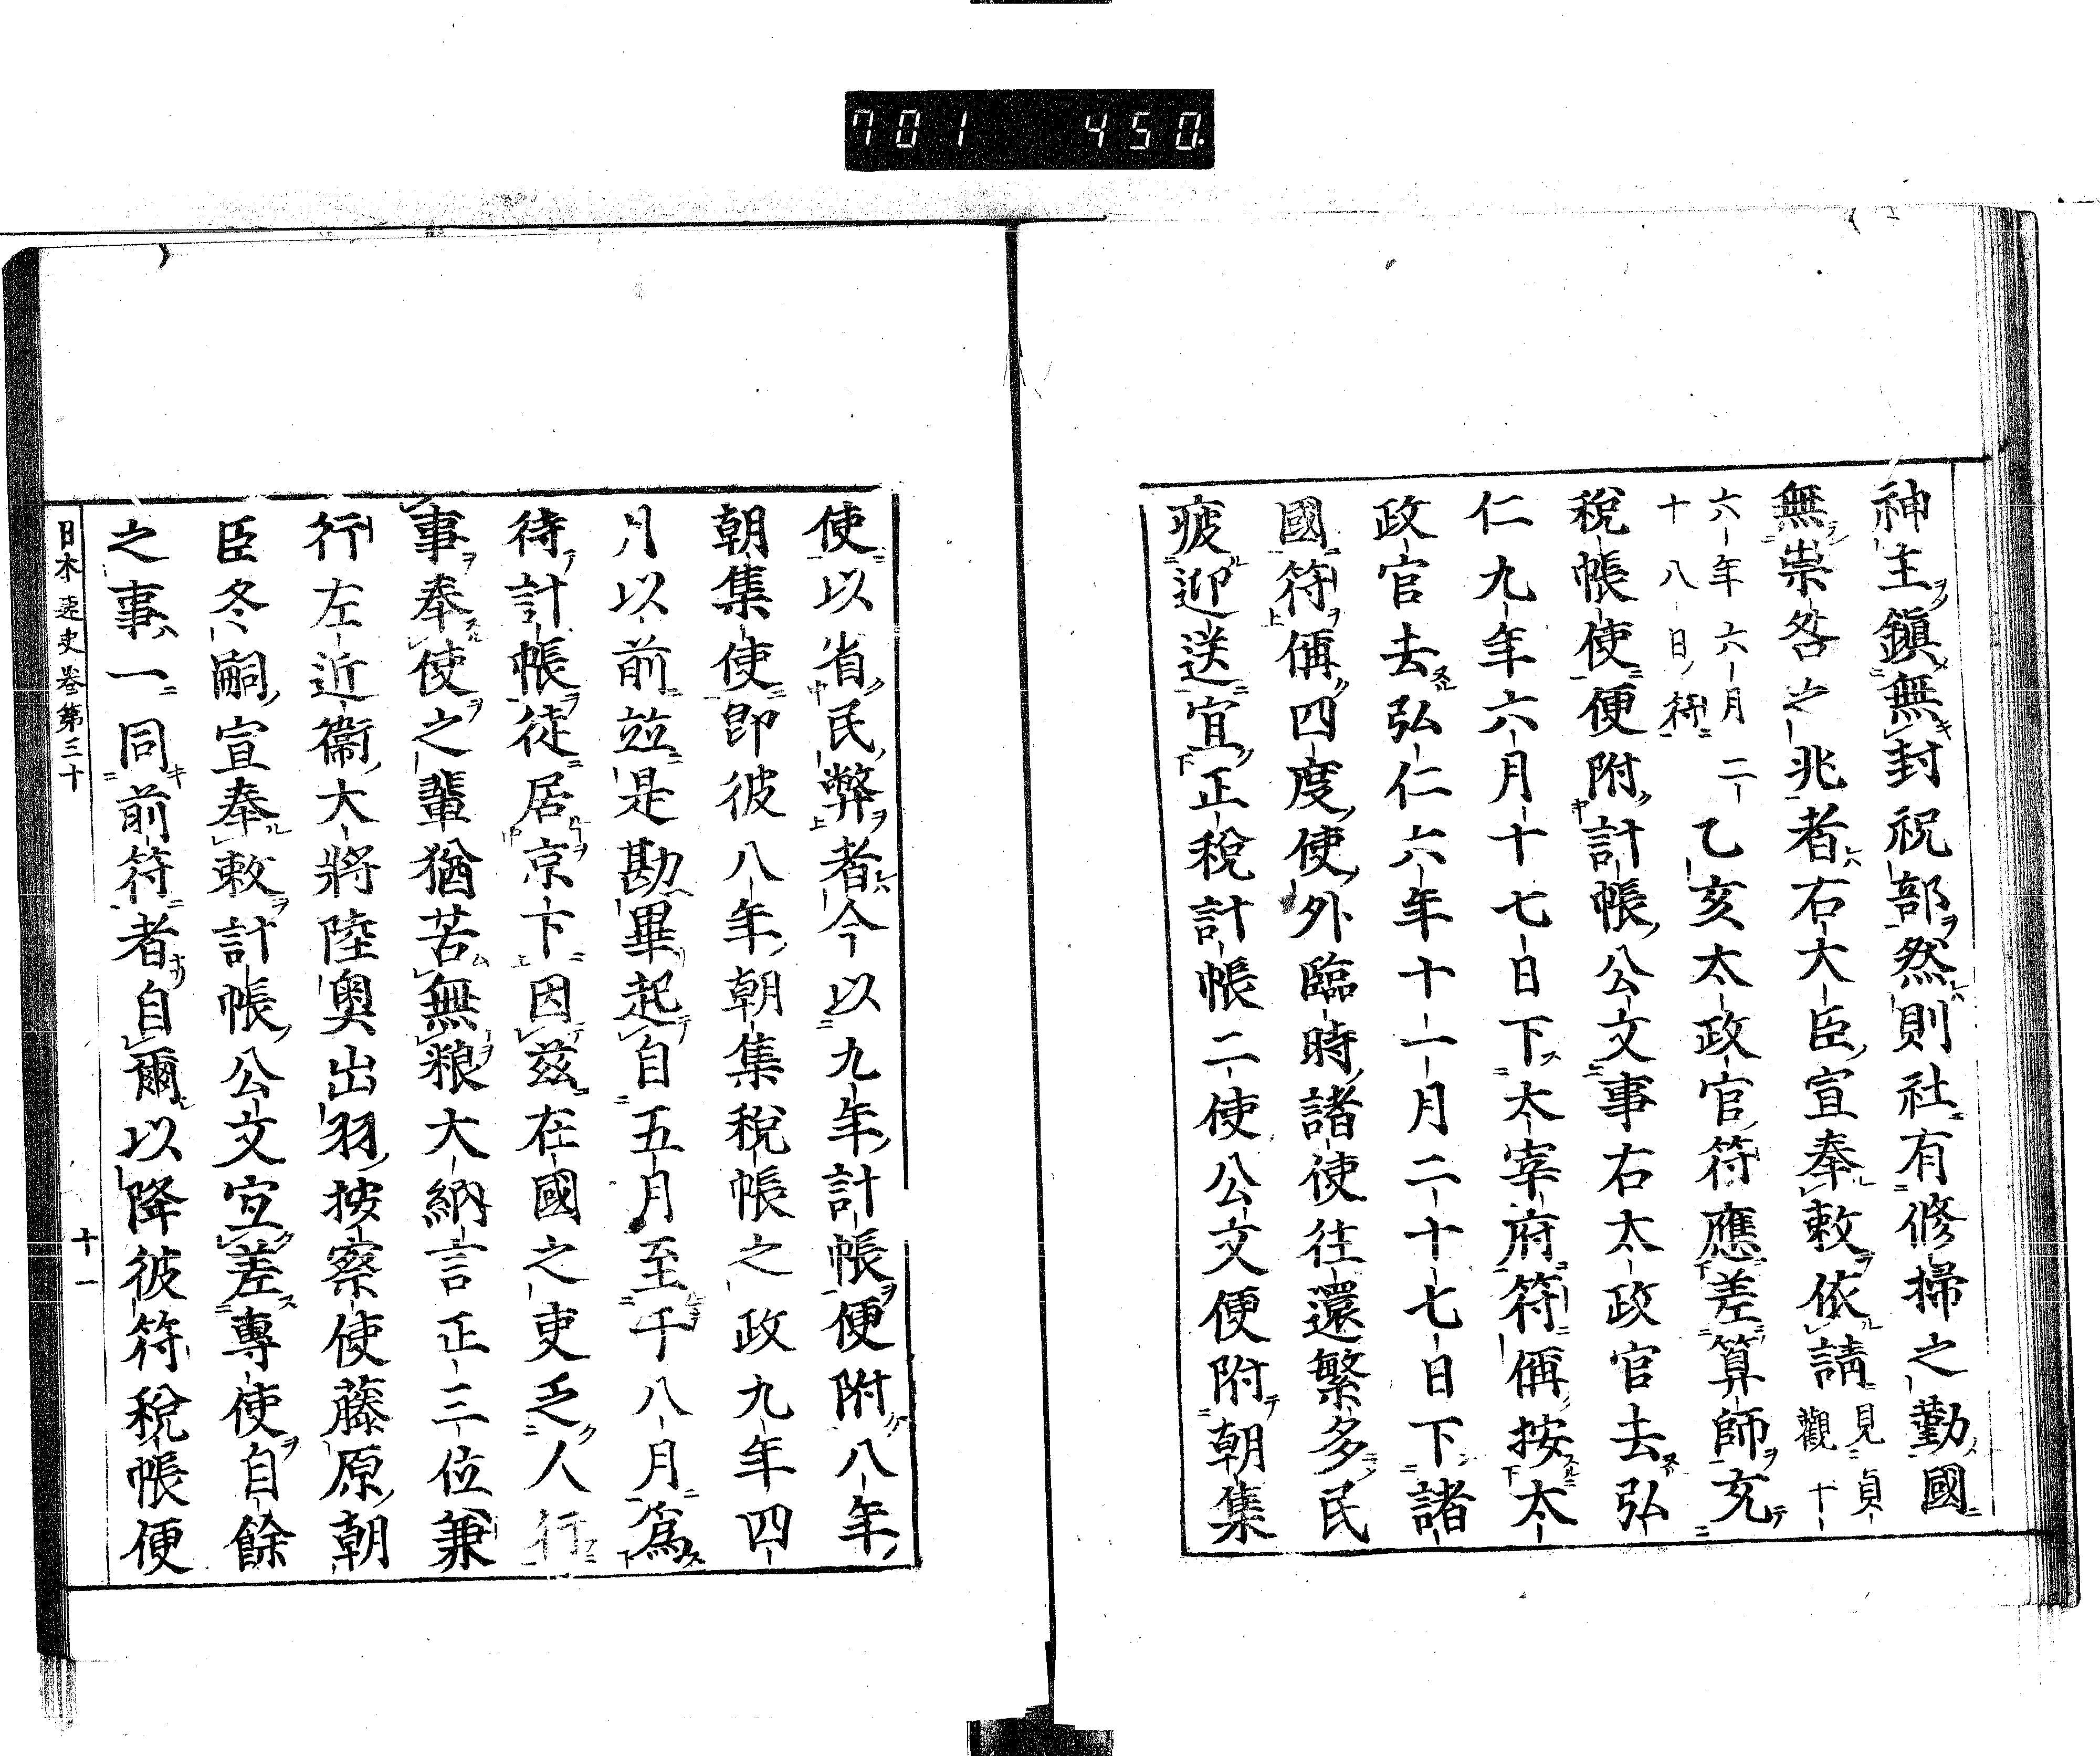 701 450
神主鎭無封祝部然則社有修掃之勤國
無祟咎之兆者右大臣宣奉敕依請見貞觀十
六年六月二十八日符
乙亥太政官符應差算師充
稅帳使便附計帳公文事右太政官去弘
仁九年六月十七日下太宰府符偁按太
政官去弘仁六年十一月二十七日下諸
國符偁四度使外臨時諸使往還繁多民
疲迎送宜正稅計帳二使公文便附朝集
使以省民弊者今以九年計帳便附八年
朝集使卽彼八年朝集稅帳之政九年四
月以前竝是勘畢起自五月至于八月爲
待計帳徒居京下因茲在國之吏乏人行
事奉使之輩猶苦無粮大納言正三位兼
行左近衞大將陸奧出羽按察使藤原朝
臣冬嗣宣奉敕計帳公文宜差專使自餘
之事一同前符者自爾以降彼符稅帳便
日本逸史卷第三十 十一